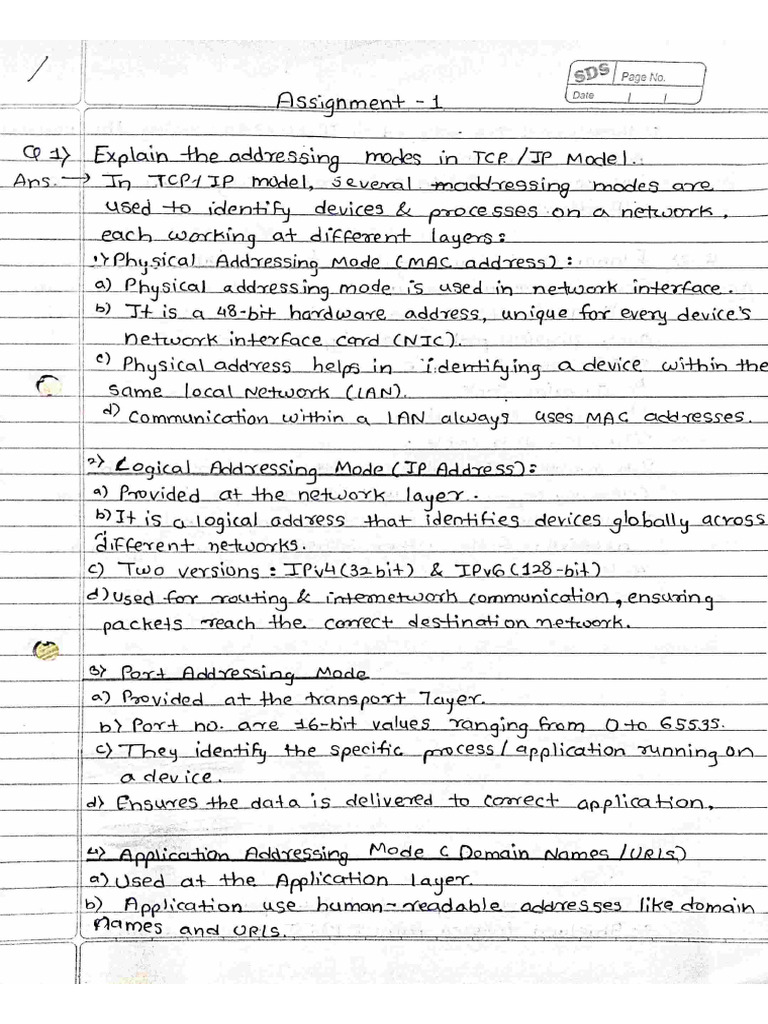 SDS Page No.
Date / /
Assignment - 1
Q 1) Explain the addressing modes in TCP/IP Model.
Ans. → In TCP/IP model, several maddressing modes are
used to identify devices & processes on a network,
each working at different layers:
1) Physical Addressing Mode (MAC address):
a) Physical addressing mode is used in network interface.
b) It is a 48-bit hardware address, unique for every device's
network interface card (NIC).
c) Physical address helps in identifying a device within the
same local Network (LAN).
d) Communication within a LAN always uses MAC addresses.
2) Logical Addressing Mode (IP Address):
a) Provided at the network layer.
b) It is a logical address that identifies devices globally across
different networks.
c) Two versions: IPv4(32 bit) & IPv6 (128-bit)
d) Used for routing & internetwork communication, ensuring
packets reach the correct destination network.
3) Port Addressing Mode
a) Provided at the transport layer.
b) Port no. are 16-bit values ranging from 0 to 65535.
c) They identify the specific process/application running on
a device.
d) Ensures the data is delivered to correct application.
4) Application Addressing Mode ( Domain Names /URLs)
a) Used at the Application layer.
b) Application use human-readable addresses like domain
names and URLs.